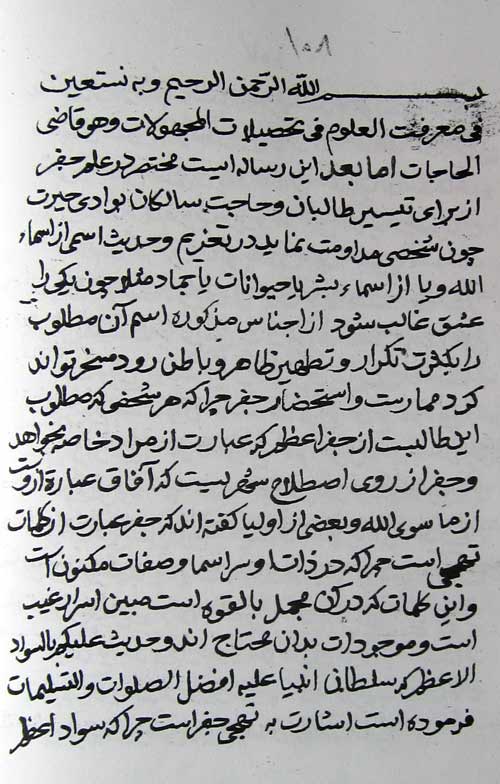 ١٠٨
بسم الله الرحمن الرحیم و به نستعین
فی معرفت العلوم فی تحصیلات المجهولات وهو قاضی
الحاجات اما بعد این رساله ایست مختصر در علم جفر
از برای تیسیر طالبان و حاجت سالکان بوادی حیرت
چون شخصی مداومت نماید در تعزیم وحدیث اسمی از اسماء
الله و یا از اسماء بشر یا حیوانات یا جماد مثلا چون یکی را
عشق غالب شود از اجناس مذکوره اسم آن مطلوب
را بکثرت تکرار و تطهیر ظاهر و باطن رود مسخر تواند
کرد ممارست و استحضار جفر چرا که هر شخصی که مطلوب
این طالبست از جفر اعظم که عبارت از مراد خاصه بخواهد
و جفر از روی اصطلاح سخریست که آفاق عبارة ازوست
از ما سوی الله و بعضی از اولیا گفته اند که جفر عبارت از کلمات
تهجی است چرا که در ذات او سر اسما و صفات مکنون است
و این کلمات که در کن مجمل بالقوه است مبین اسرار غیب
است و موجودات بدان محتاج اند و حدیث علیکم بالسواد
الاعظم که سلطان انبیا علیه افضل الصلوات والتسلیمات
فرموده است اشارت به تهجی جفر است چرا که سواد اعظم